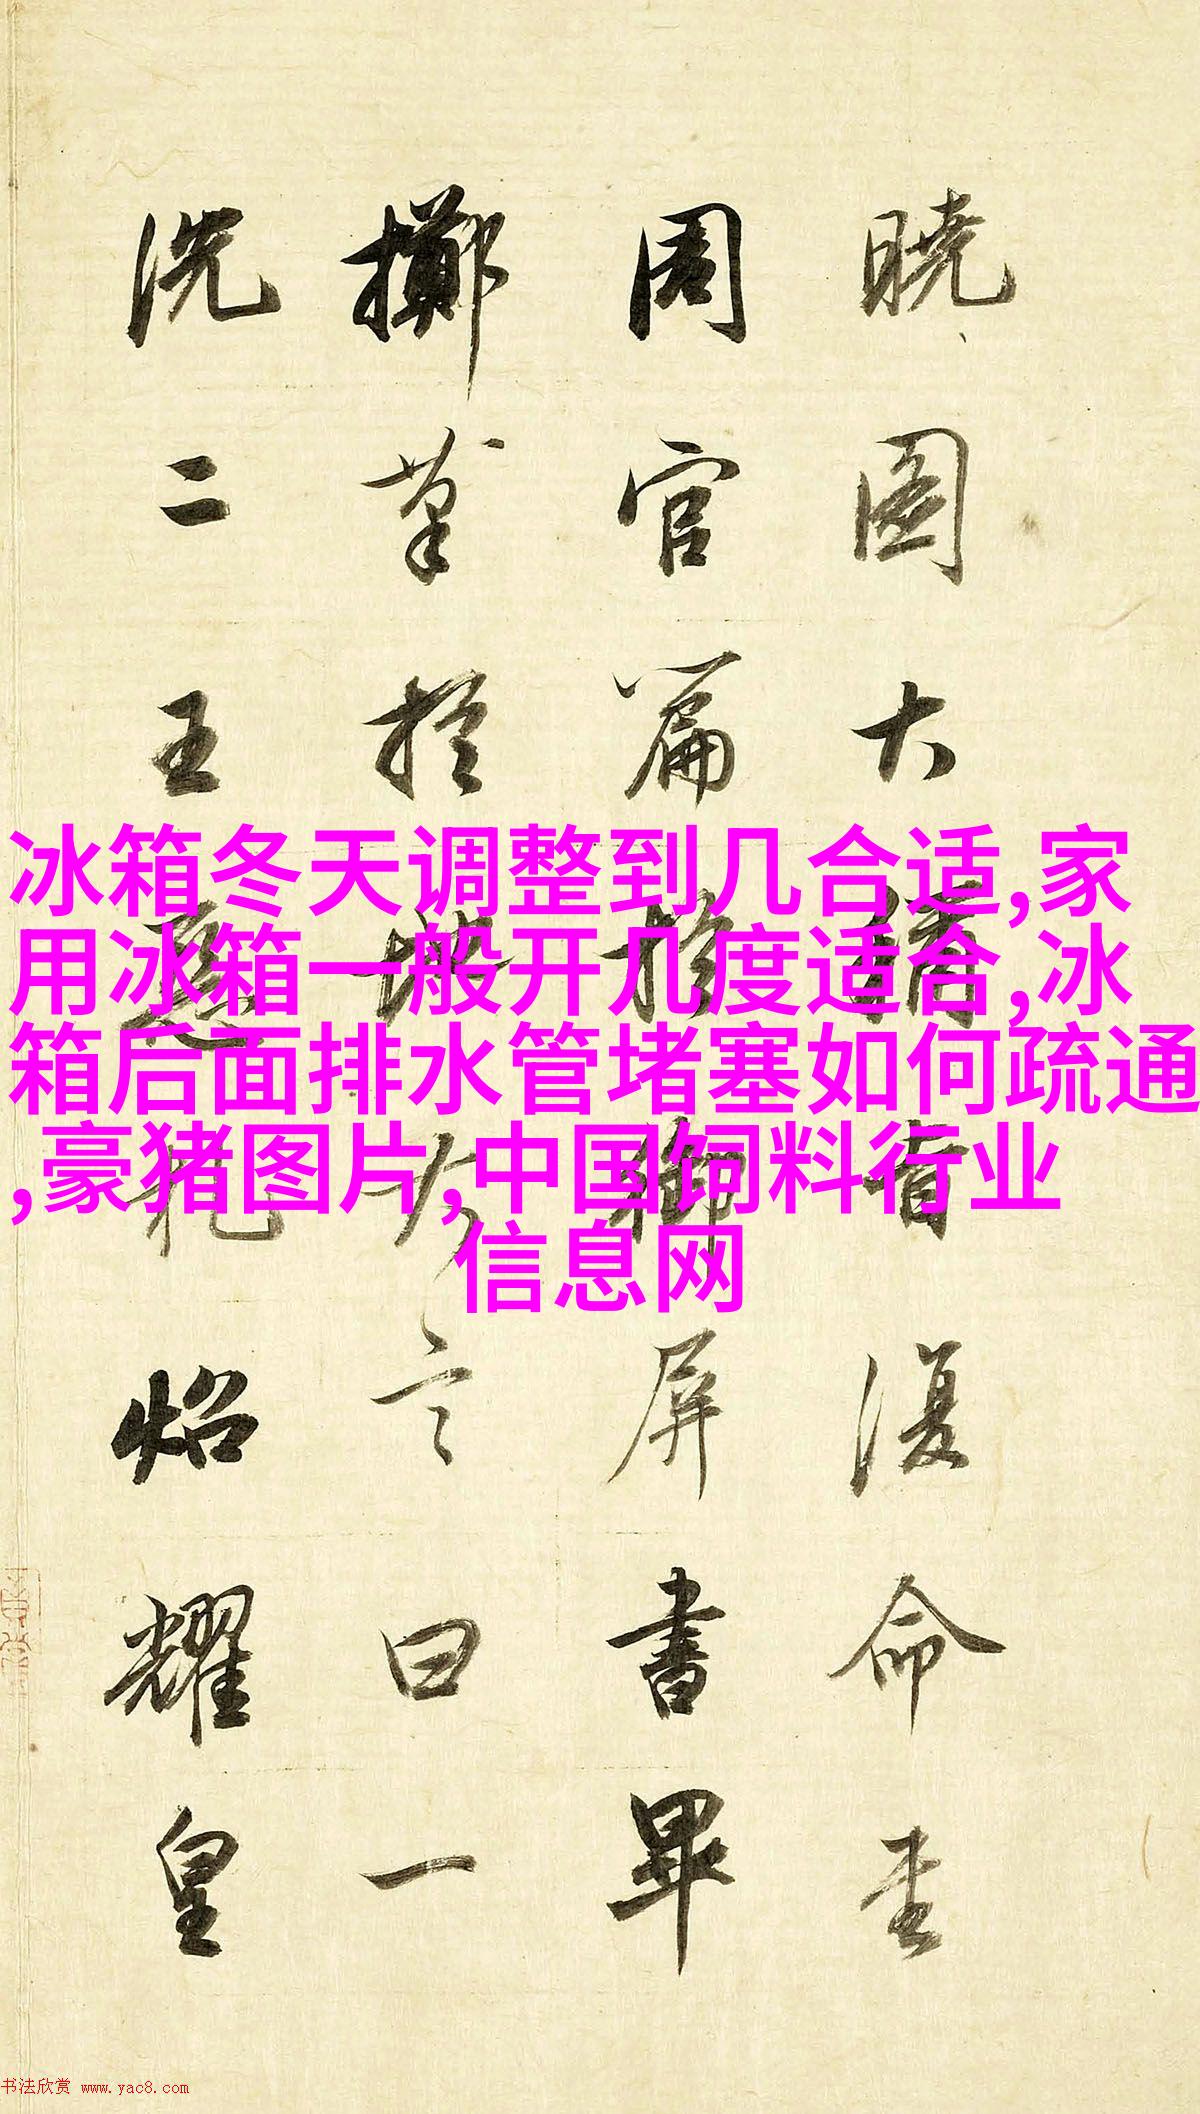 曉圖大稱旨復命書
周官篇於御屏書畢
擲筆於地大言曰一
洗二王惡札炤耀皇
冰箱冬天调整到几合适,家
用冰箱一般开几度适合,冰
箱后面排水管堵塞如何疏通
,豪猪图片,中国饲料行业
信息网
书法欣赏 www.yac8.com